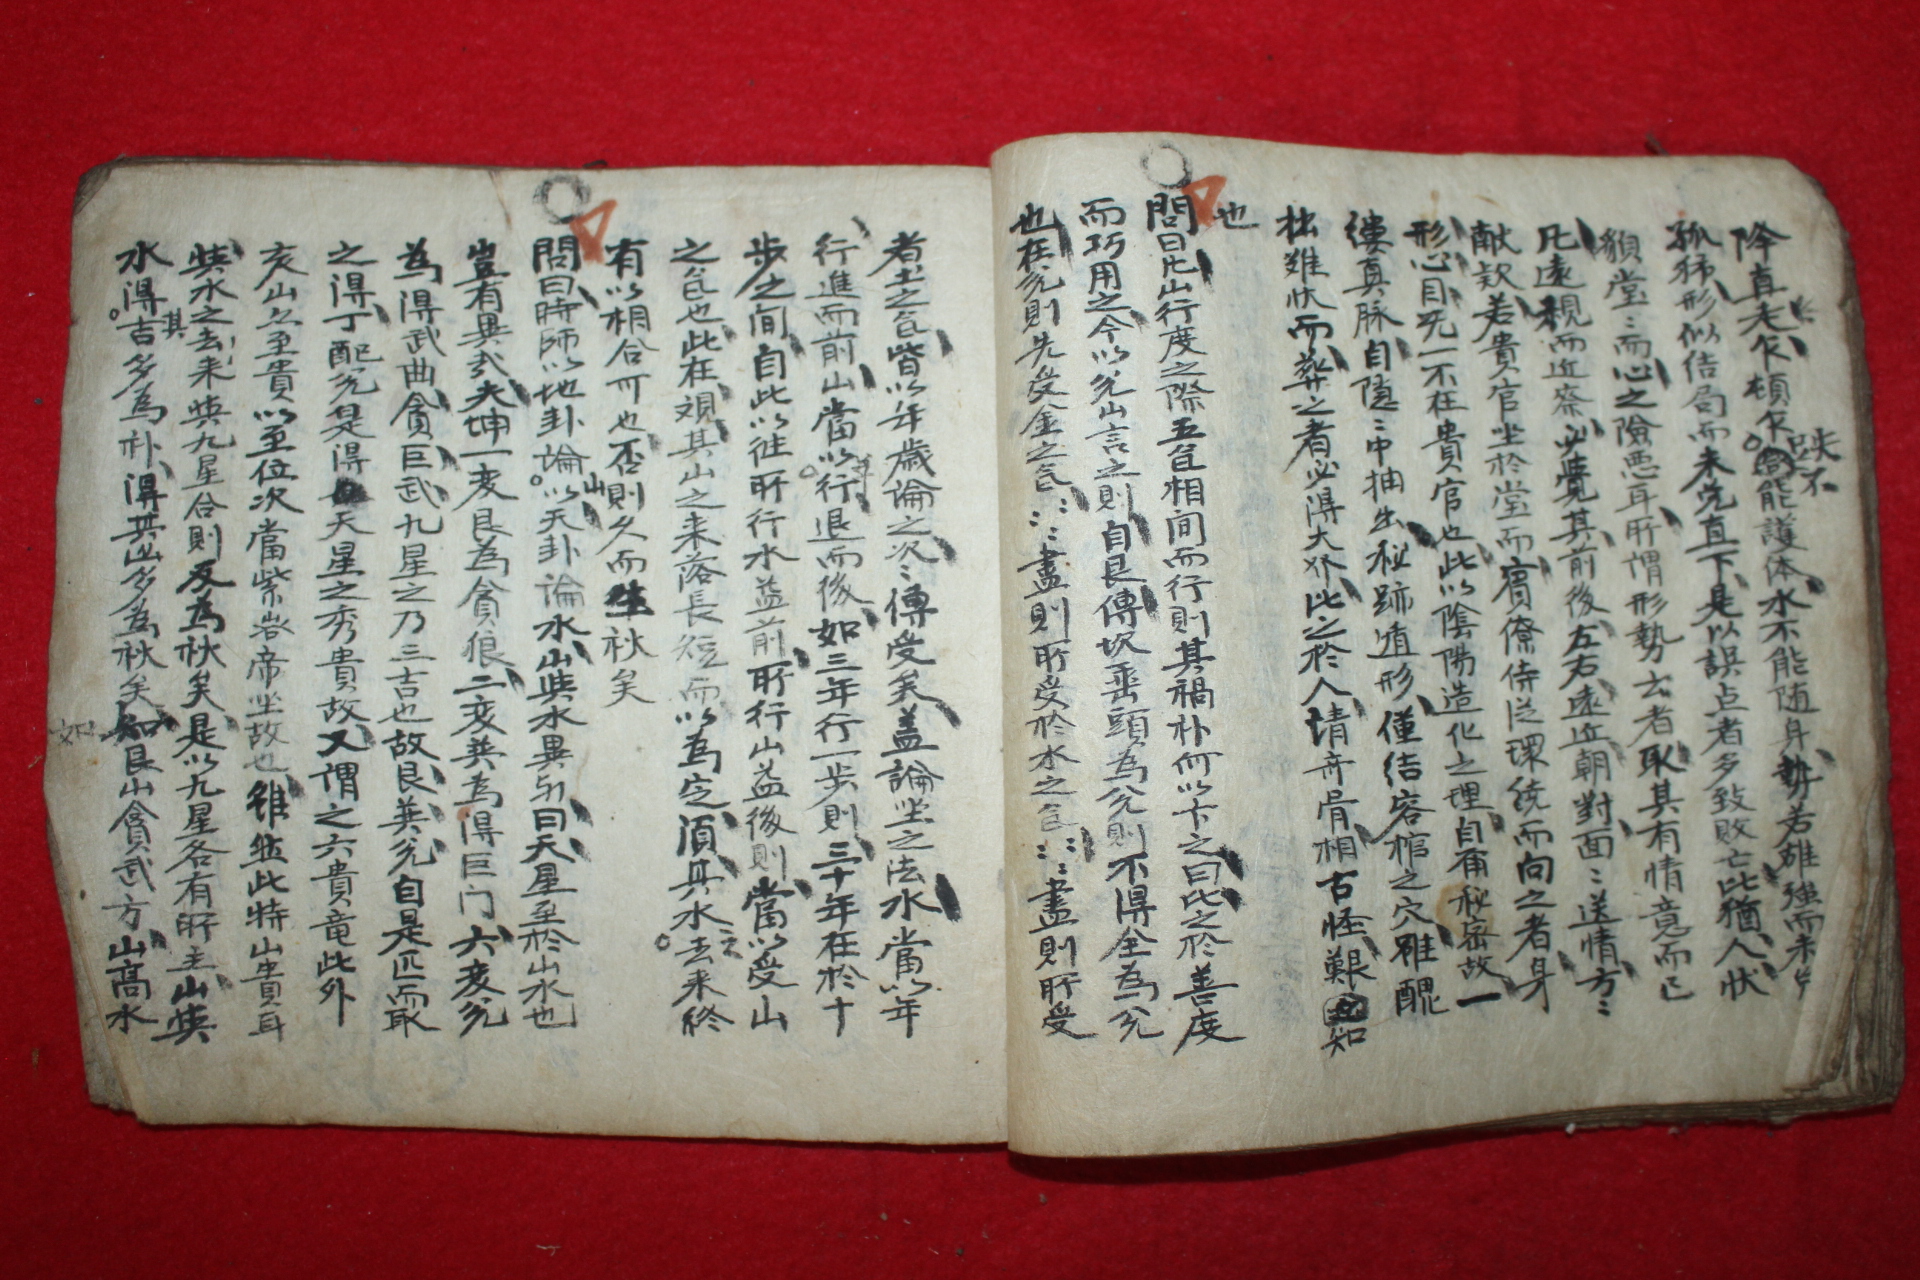 降真走欠頓欠能護体水不能随身勢若雄強而未
孤狋形似結局而未完直下是以誤点者多致敗亡此猶人状
額堂〻而心之險悪耳所謂形勢去者取其有情意而已
凡遠観而近察必覚其前後左右遠近朝對面〻送情方〻
献欵若貴官坐於堂而賓僚侍従環繞而向之者身
形心目死一不在貴官也此以陰陽造化之理自有秘密故一
縷真脉自隠〻中抽出秘跡遁形僅結容棺之穴雖醜
拙難状而葬之者必得大発比之於人情奇骨相古怪艱知
也
問曰凡山行度之際五气相間而行則其禍福何以卞之曰此之於善度
而巧用之今以兌山言之則自艮傳坎垂頭為兌則不得全為兌
也在兌則先受金之气〻〻盡則所受於水之气〻〻盡則所受
者土之气皆以年歳論之次〻傳受矣盖論坐之法水當以年
行進而前山當以行退而後如三年行一步則三十年在於十
步之間自此以徃所行水益前所行山益後則當以受山
之气也此在覌其山之来落長短而以為定湏具水去来終
有以相合可也否則久而生秋矣
問曰時師以地卦論山以天卦論水山與水異乎曰天星至於山水也
豈有異哉夫坤一变艮為貪狼二变巽為得巨门六变兌
為得武曲貪巨武九星之乃三吉也故艮巽兌自是匹而取
之得丁配兌是得天星之秀貴故又謂之六貴竜此外
亥山乆至貴以至位次當紫微帝坐故也雖然此特山貴耳
與水之去来與九星合則反為秋矣是以九星各有所主山與
水得其吉多為福得其凶多為秋矣如艮山貪武方山高水